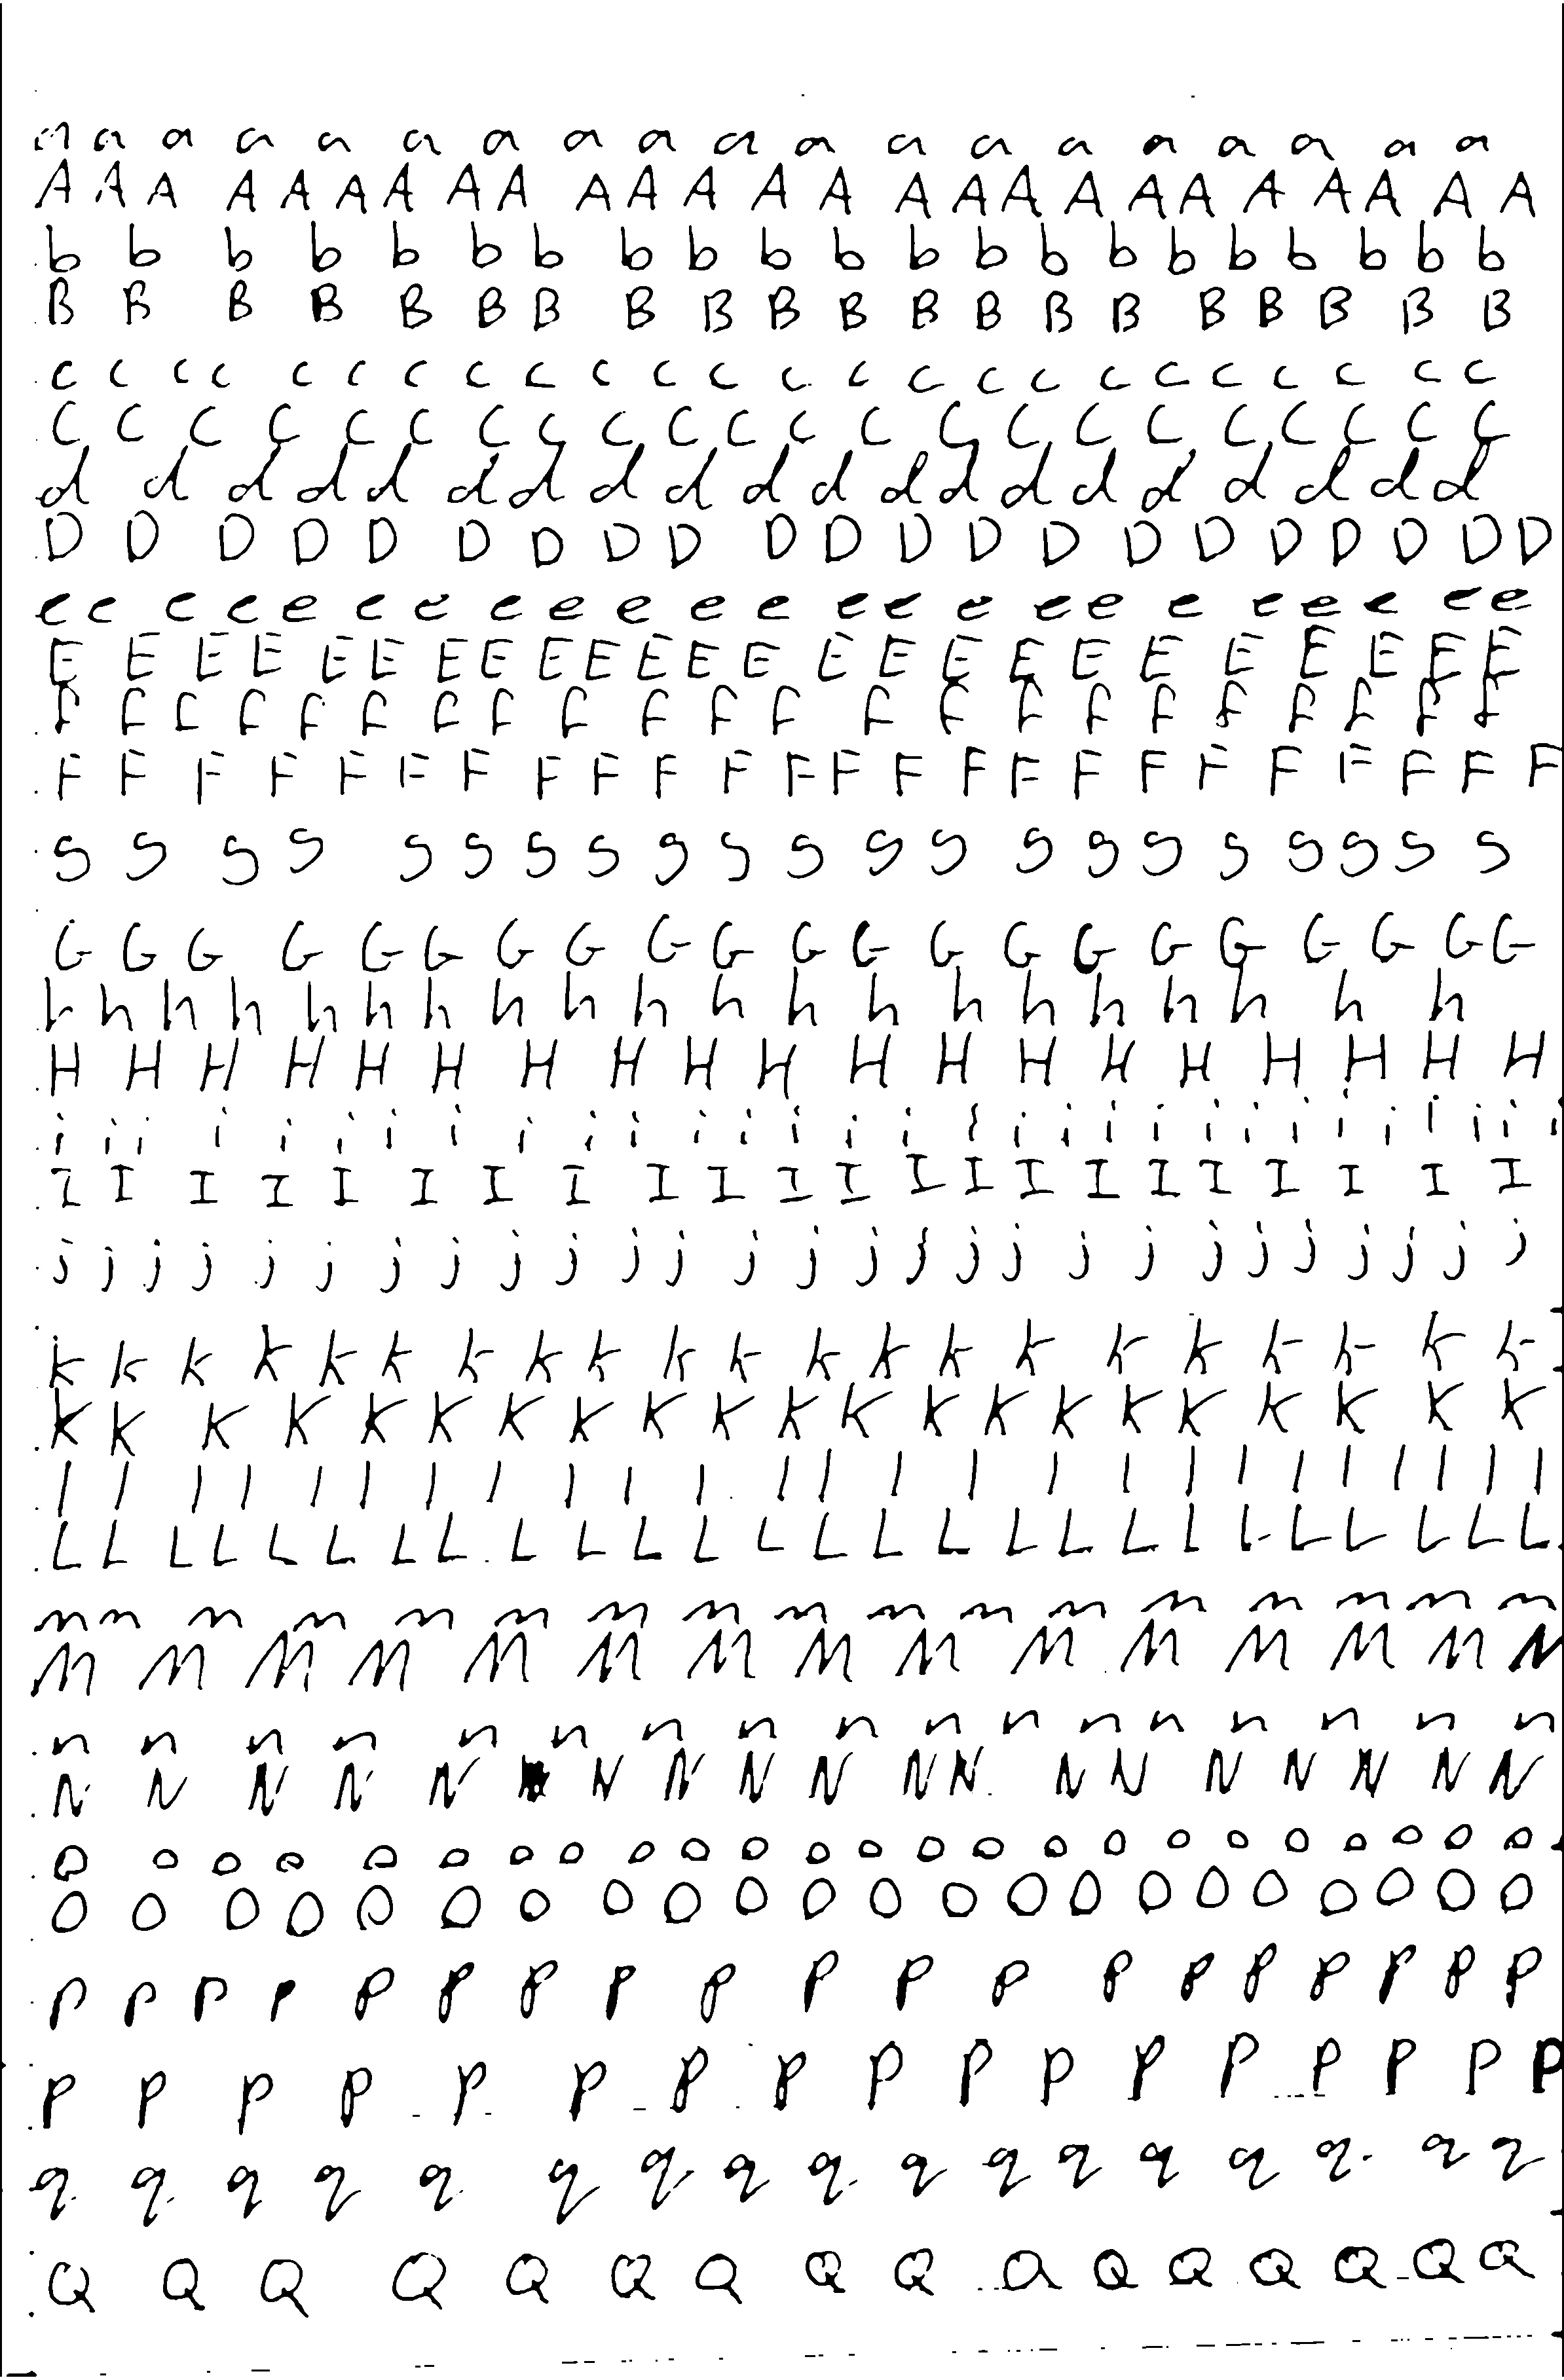 a a a a a a a a a a a a a a a a a a a
A A A A A A A A A A A A A A A A A A A A A A A A A
b b b b b b b b b b b b b b b b b b b b b
B B B B B B B B B B B B B B B B B B B B
c c c c c c c c c c c c c c c c c c c c c c c c
C C C C C C C C C C C C C C C C C C C C C C
d d d d d d d d d d d d d d d d d d d d
D D D D D D D D D D D D D D D D D D D D D
e e e e e e e e e e e e e e e e e e e e e e e
E E E E E E E E E E E E E E E E E E E E E E E E
f f f f f f f f f f f f f f f f f f f f f f
F F F F F F F F F F F F F F F F F F F F F F F F
g g g g g g g g g g g g g g g g g g g g g
G G G G G G G G G G G G G G G G G G G G G
h h h h h h h h h h h h h h h h h h h h
H H H H H H H H H H H H H H H H H H H
i i i i i i i i i i i i i i i i i i i i i i i i i i i i i i
I I I I I I I I I I I I I I I I I I I I I I
j j j j j j j j j j j j j j j j j j j j j j j j j j j
k k k k k k k k k k k k k k k k k k k k k
K K K K K K K K K K K K K K K K K K K K K
l l l l l l l l l l l l l l l l l l l l l l l l l
L L L L L L L L L L L L L L L L L L L L L L L L L L
m m m m m m m m m m m m m m m m m
M M M M M M M M M M M M M M M
n n n n n n n n n n n n n n n n n
N N N N N N N N N N N N N N N N N N
o o o o o o o o o o o o o o o o o o o o o o o o
O O O O O O O O O O O O O O O O O O O O O O
p p p p p p p p p p p p p p p p p p p
P P P P P P P P P P P P P P P P P
q q q q q q q q q q q q q q q q q
Q Q Q Q Q Q Q Q Q Q Q Q Q Q Q Q